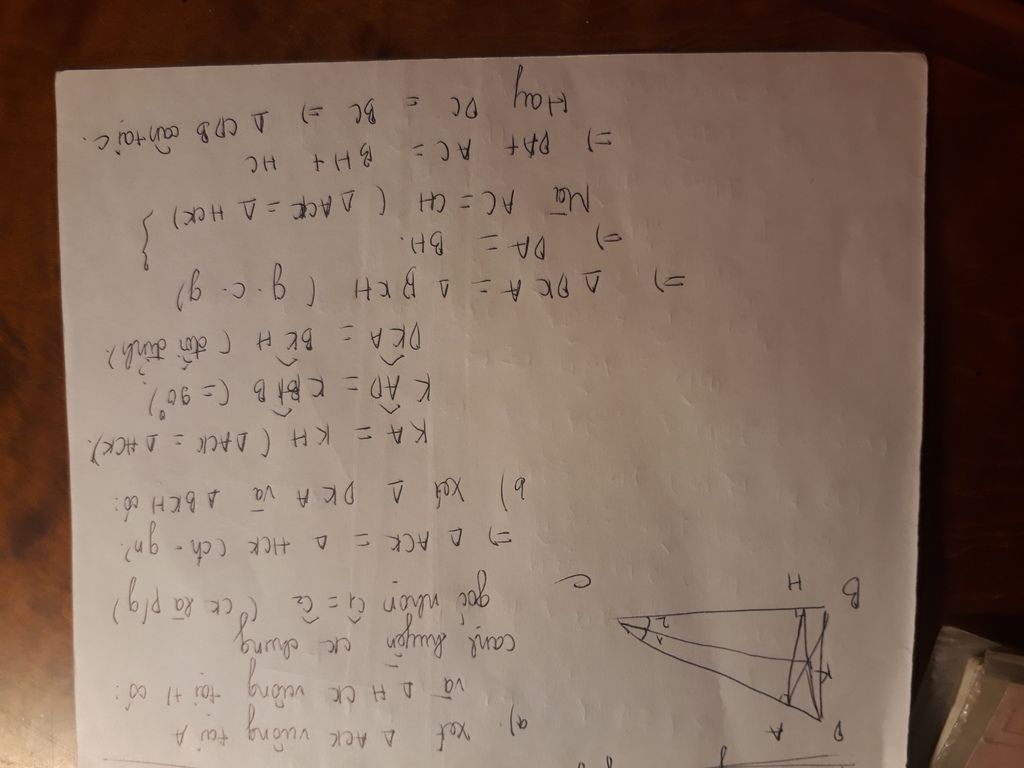 a) xét Δ ACK vuông tại A
và Δ HCK vuông tại H có:
cạnh huyền CK chung
góc nhọn Ĉ1 = Ĉ2 (CK là p/g)
=> Δ ACK = Δ HCK (ch - gn).
b) xét Δ DKA và Δ BKH có:
KA = KH (ΔACK = ΔHCK).
KÂD = KĤB (= 90°)
DK̂A = BK̂H (đối đỉnh)
=> Δ DKA = Δ BKH (g.c.g)
=> DA = BH.
Mà AC = CH (ΔACK = ΔHCK) }
=> DA + AC = BH + HC
Hay DC = BC => Δ CDB cân tại C.
D
A
K
1
2
C
H
B